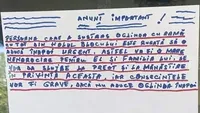 ANUNȚ IMPORTANT!
PERSOANA CARE A SUSTRAS OGLINDA CU RAMĂ
DIN HOLUL BLOCULUI ESTE RUGATĂ SĂ O
ADUCĂ ÎNAPOI URGENT, ASTFEL VA FI O MARE
NENOROCIRE PENTRU EL ȘI FAMILIA LUI. SE
VOR DA SLUJBE LA PREOT ȘI LA MĂNĂSTIRE
ÎN PRIVINȚA ACEASTA, IAR CONSECINȚELE
VOR FI GRAVE, DACĂ NU ADUCE OGLINDA ÎNAPOI